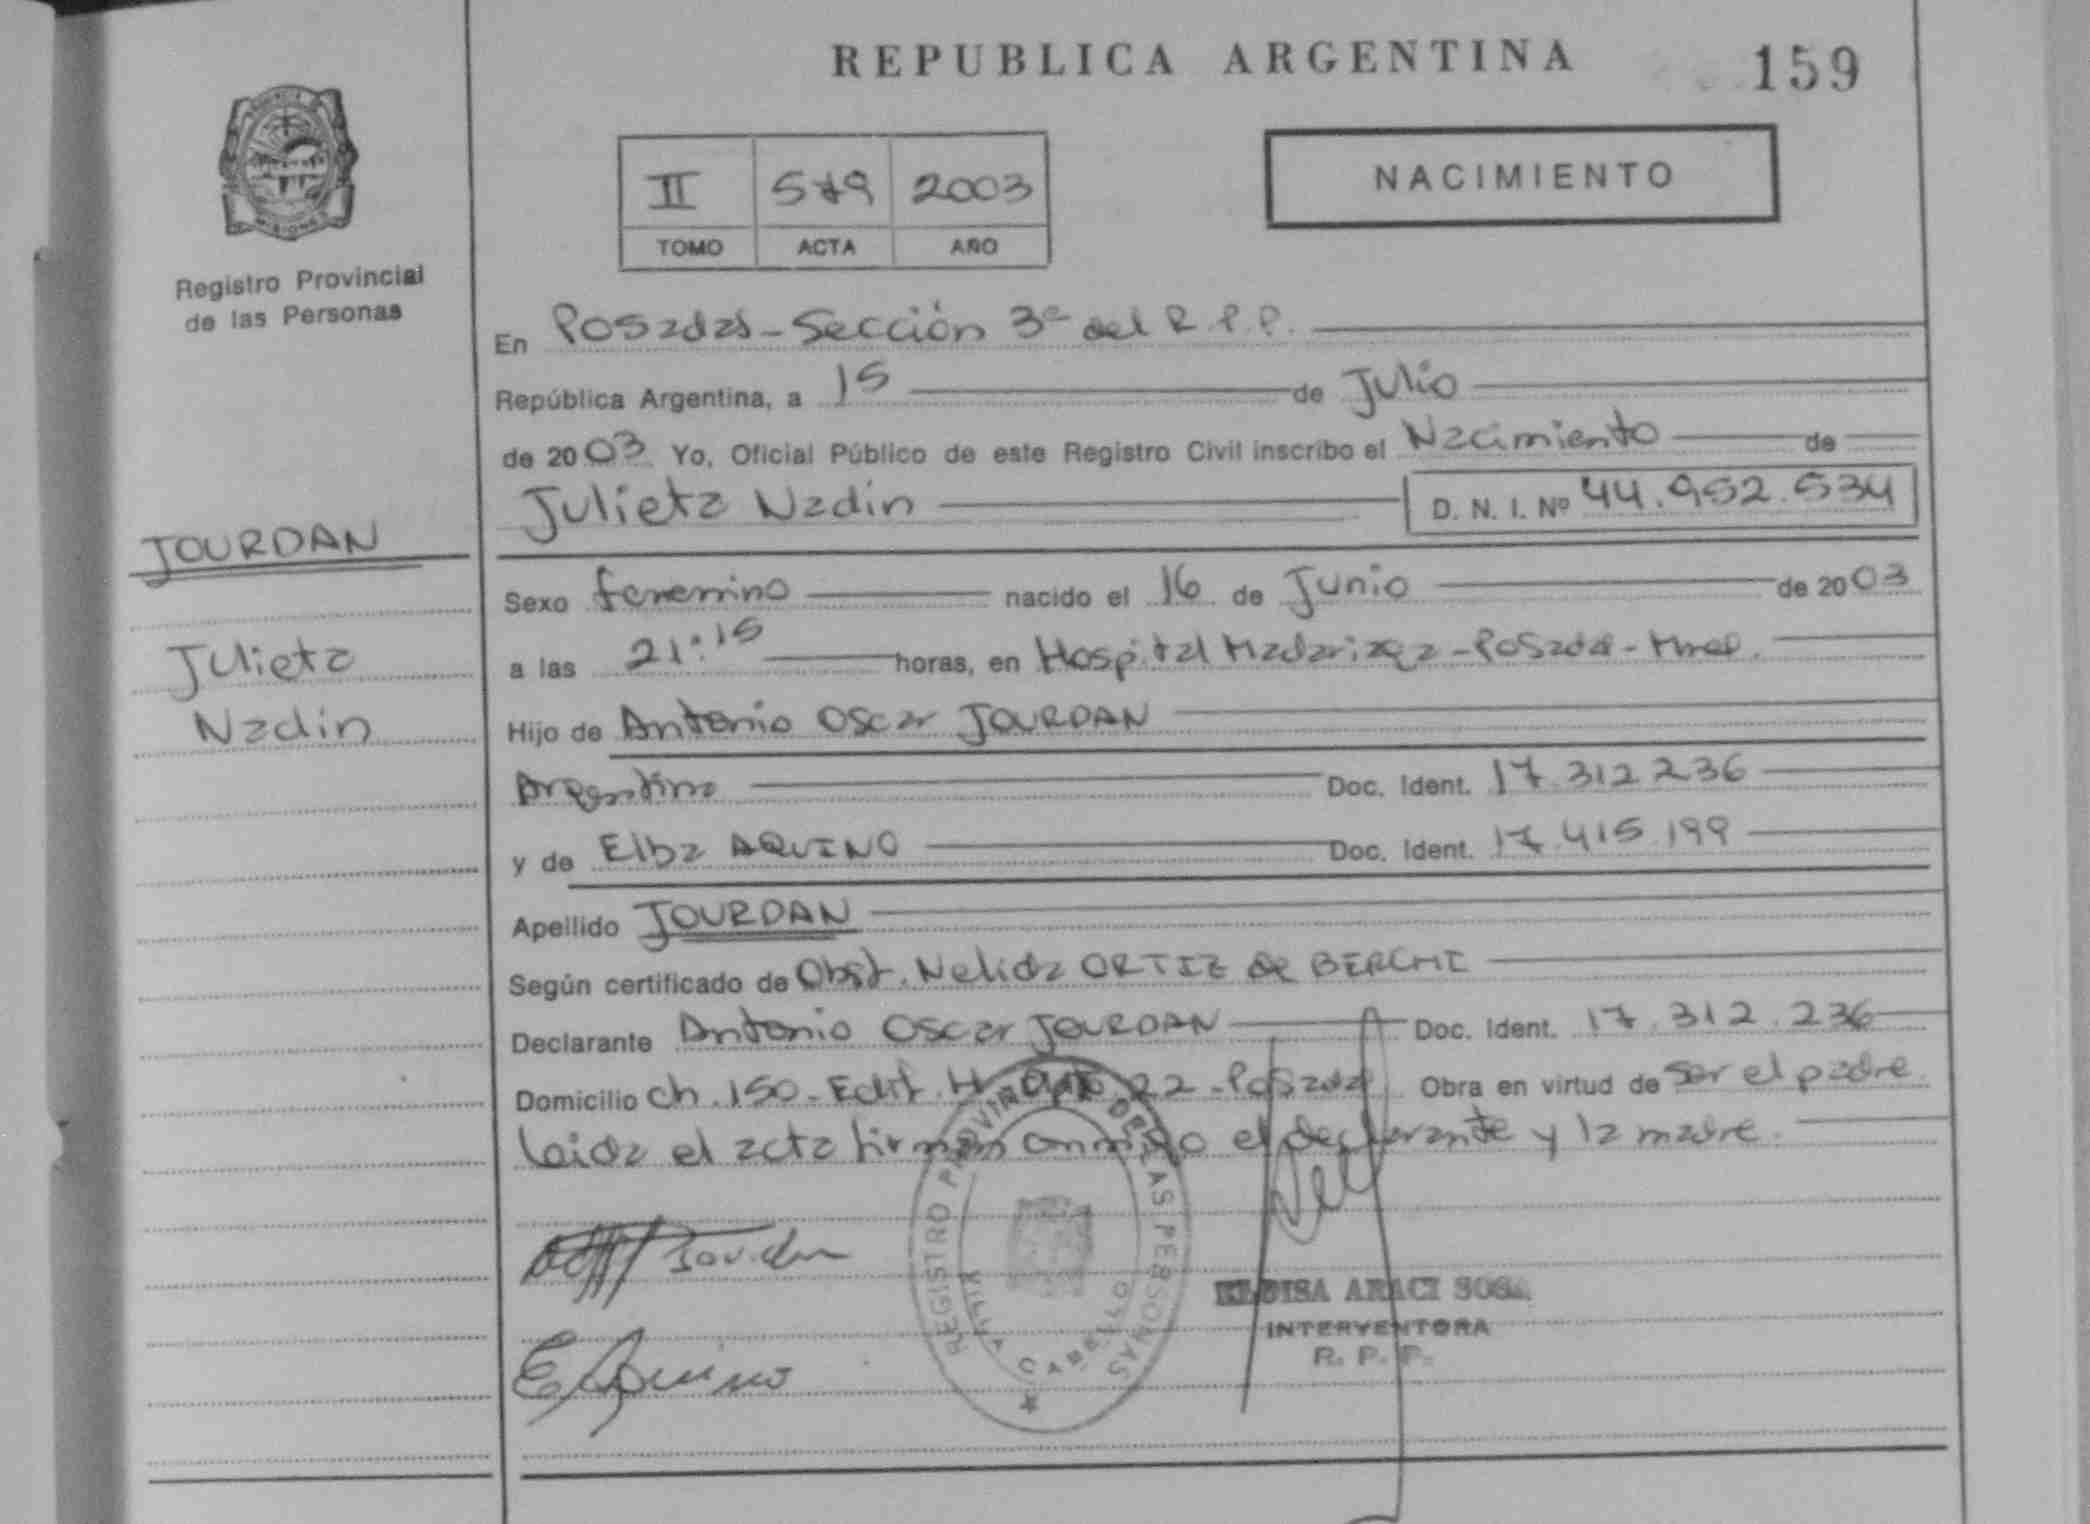 REPUBLICA ARGENTINA
159
Registro Provincial
de las Personas
II 579 2003
TOMO ACTA AÑO
NACIMIENTO
En Posadas - Sección 3ª del R.P.P.
República Argentina, a 15 de Julio
de 2003 Yo, Oficial Público de este Registro Civil inscribo el Nacimiento de
Julieta Nadin D. N. I. Nº 44.952.534
JOURDAN
Julieta
Nadin
Sexo femenino nacido el 16 de Junio de 2003
a las 21:15 horas, en Hospital Madariaga - Posadas - Mnes.
Hijo de Antonio Oscar JOURDAN
Argentino Doc. Ident. 17.312.236
y de Elba AQUINO Doc. Ident. 17.415.199
Apellido JOURDAN
Según certificado de Obst. Nelida ORTIZ de BERCHI
Declarante Antonio Oscar JOURDAN Doc. Ident. 17.312.236
Domicilio Ch. 150 - Edif. H - Dpto 22 - Posadas Obra en virtud de ser el padre
Leida el acta firman conmigo el declarante y la madre.
REGISTRO PROVINCIAL DE LAS PERSONAS
VILLA CABELLO
E Aquino
ELOISA ARACI SOSA
INTERVENTORA
R. P. P.